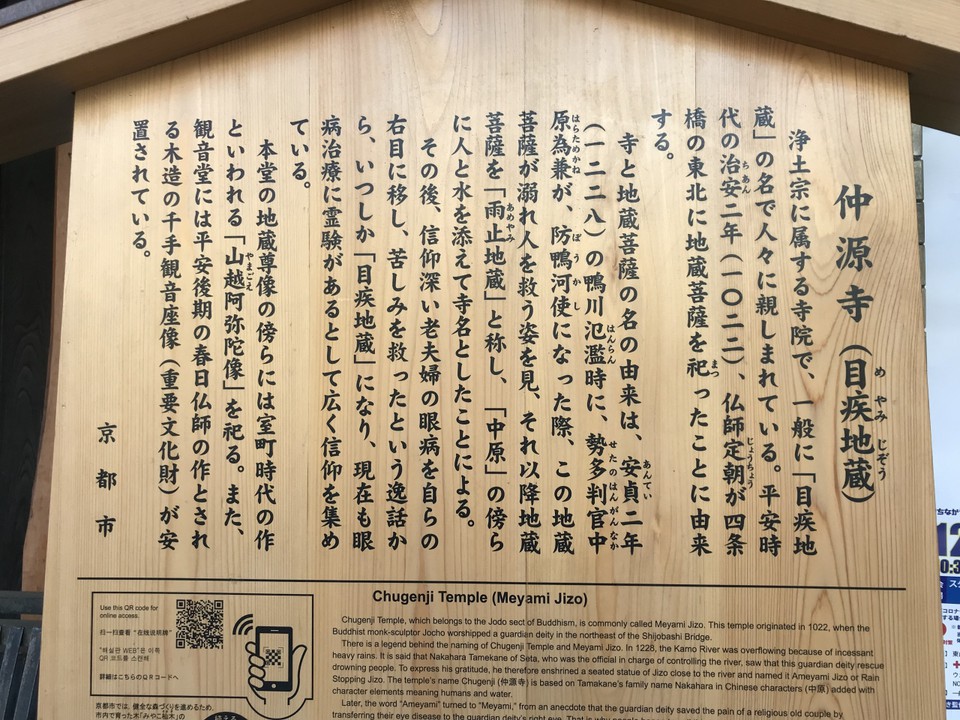 仲源寺(目疾地蔵)
めやみじぞう
浄土宗に属する寺院で、一般に「目疾地
蔵」の名で人々に親しまれている。平安時
代の治安二年(一〇二二)、仏師定朝が四条
ちあん
じょうちょう
橋の東北に地蔵菩薩を祀ったことに由来
まつ
する。
寺と地蔵菩薩の名の由来は、安貞二年
あんてい
(一二二八)の鴨川氾濫時に、勢多判官中
はんらん
せたのはんがんなか
原為兼が、防鴨河使になった際、この地蔵
はらためかね
ぼうかし
菩薩が溺れ人を救う姿を見、それ以降地蔵
菩薩を「雨止地蔵」と称し、「中原」の傍ら
あめやみ
に人と水を添えて寺名としたことによる。
その後、信仰深い老夫婦の眼病を自らの
右目に移し、苦しみを救ったという逸話か
ら、いつしか「目疾地蔵」になり、現在も眼
病治療に霊験があるとして広く信仰を集め
ている。
本堂の地蔵尊像の傍らには室町時代の作
といわれる「山越阿弥陀像」を祀る。また、
やまごえ
観音堂には平安後期の春日仏師の作とされ
る木造の千手観音座像(重要文化財)が安
置されている。
京都市
Chugenji Temple (Meyami Jizo)
Chugenji Temple, which belongs to the Jodo sect of Buddhism, is commonly called Meyami Jizo. This temple originated in 1022, when the
Buddhist monk-sculptor Jocho worshipped a guardian deity in the northeast of the Shijobashi Bridge.
There is a legend behind the naming of Chugenji Temple and Meyami Jizo. In 1228, the Kamo River was overflowing because of incessant
heavy rains. It is said that Nakahara Tamekane of Seta, who was the official in charge of controlling the river, saw that this guardian deity rescue
drowning people. To express his gratitude, he therefore enshrined a seated statue of Jizo close to the river and named it Ameyami Jizo or Rain
Stopping Jizo. The temple's name Chugenji (仲源寺) is based on Tamakane's family name Nakahara in Chinese characters (中原) added with
character elements meaning humans and water.
Later, the word "Ameyami" turned to "Meyami," from an anecdote that the guardian deity saved the pain of a religious old couple by
transferring their eye disease to the guardian deity's right eye.
Use this QR code for
online access.
扫一扫查看 "在线说明牌"
"해설판 WEB"은 이쪽
QR 코드를 스캔해
詳細はこちらのQRコードへ
京都市では、健全な森づくりを進めるため、
市内で育った木「みやこ杣木」の